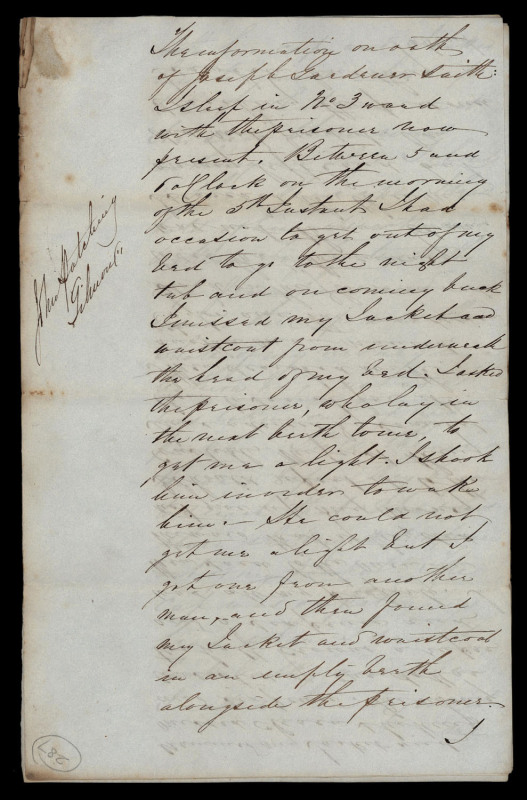 The information on oath
of Joseph Gardener saith:
I sleep in No 3 ward
with the prisoner now
present. Between 5 and
6 o'Clock on the morning
of the 5th Instant I had
occasion to get out of my
bed to go to the night
tub and on coming back
I missed my Jacket and
waistcoat from underneath
the head of my bed. I asked
the prisoner, who lay in
the next berth to me, to
get me a light. I shook
him in order to wake
him. - He could not
get me a light but I
got one from another
man, and then found
my Jacket and waistcoat
in an empty berth
alongside the prisoner.
John